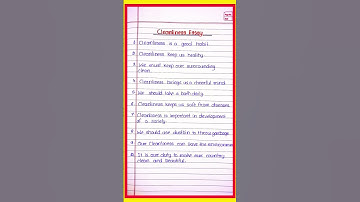 Cleanliness Essay
1 Cleanliness is a good habit.
2 Cleanliness keep us healthy.
3 We must keep our surrounding
clean.
4 Cleanliness brings us a cheerful mind.
5 We should take a bath daily.
6 Cleanliness keeps us safe from diseases.
7 Cleanliness is important in development
of a society.
8 We should use dustbin to throw garbage.
9 Our Cleanliness can save the environment.
10 It is our duty to make our country
clean and beautiful.